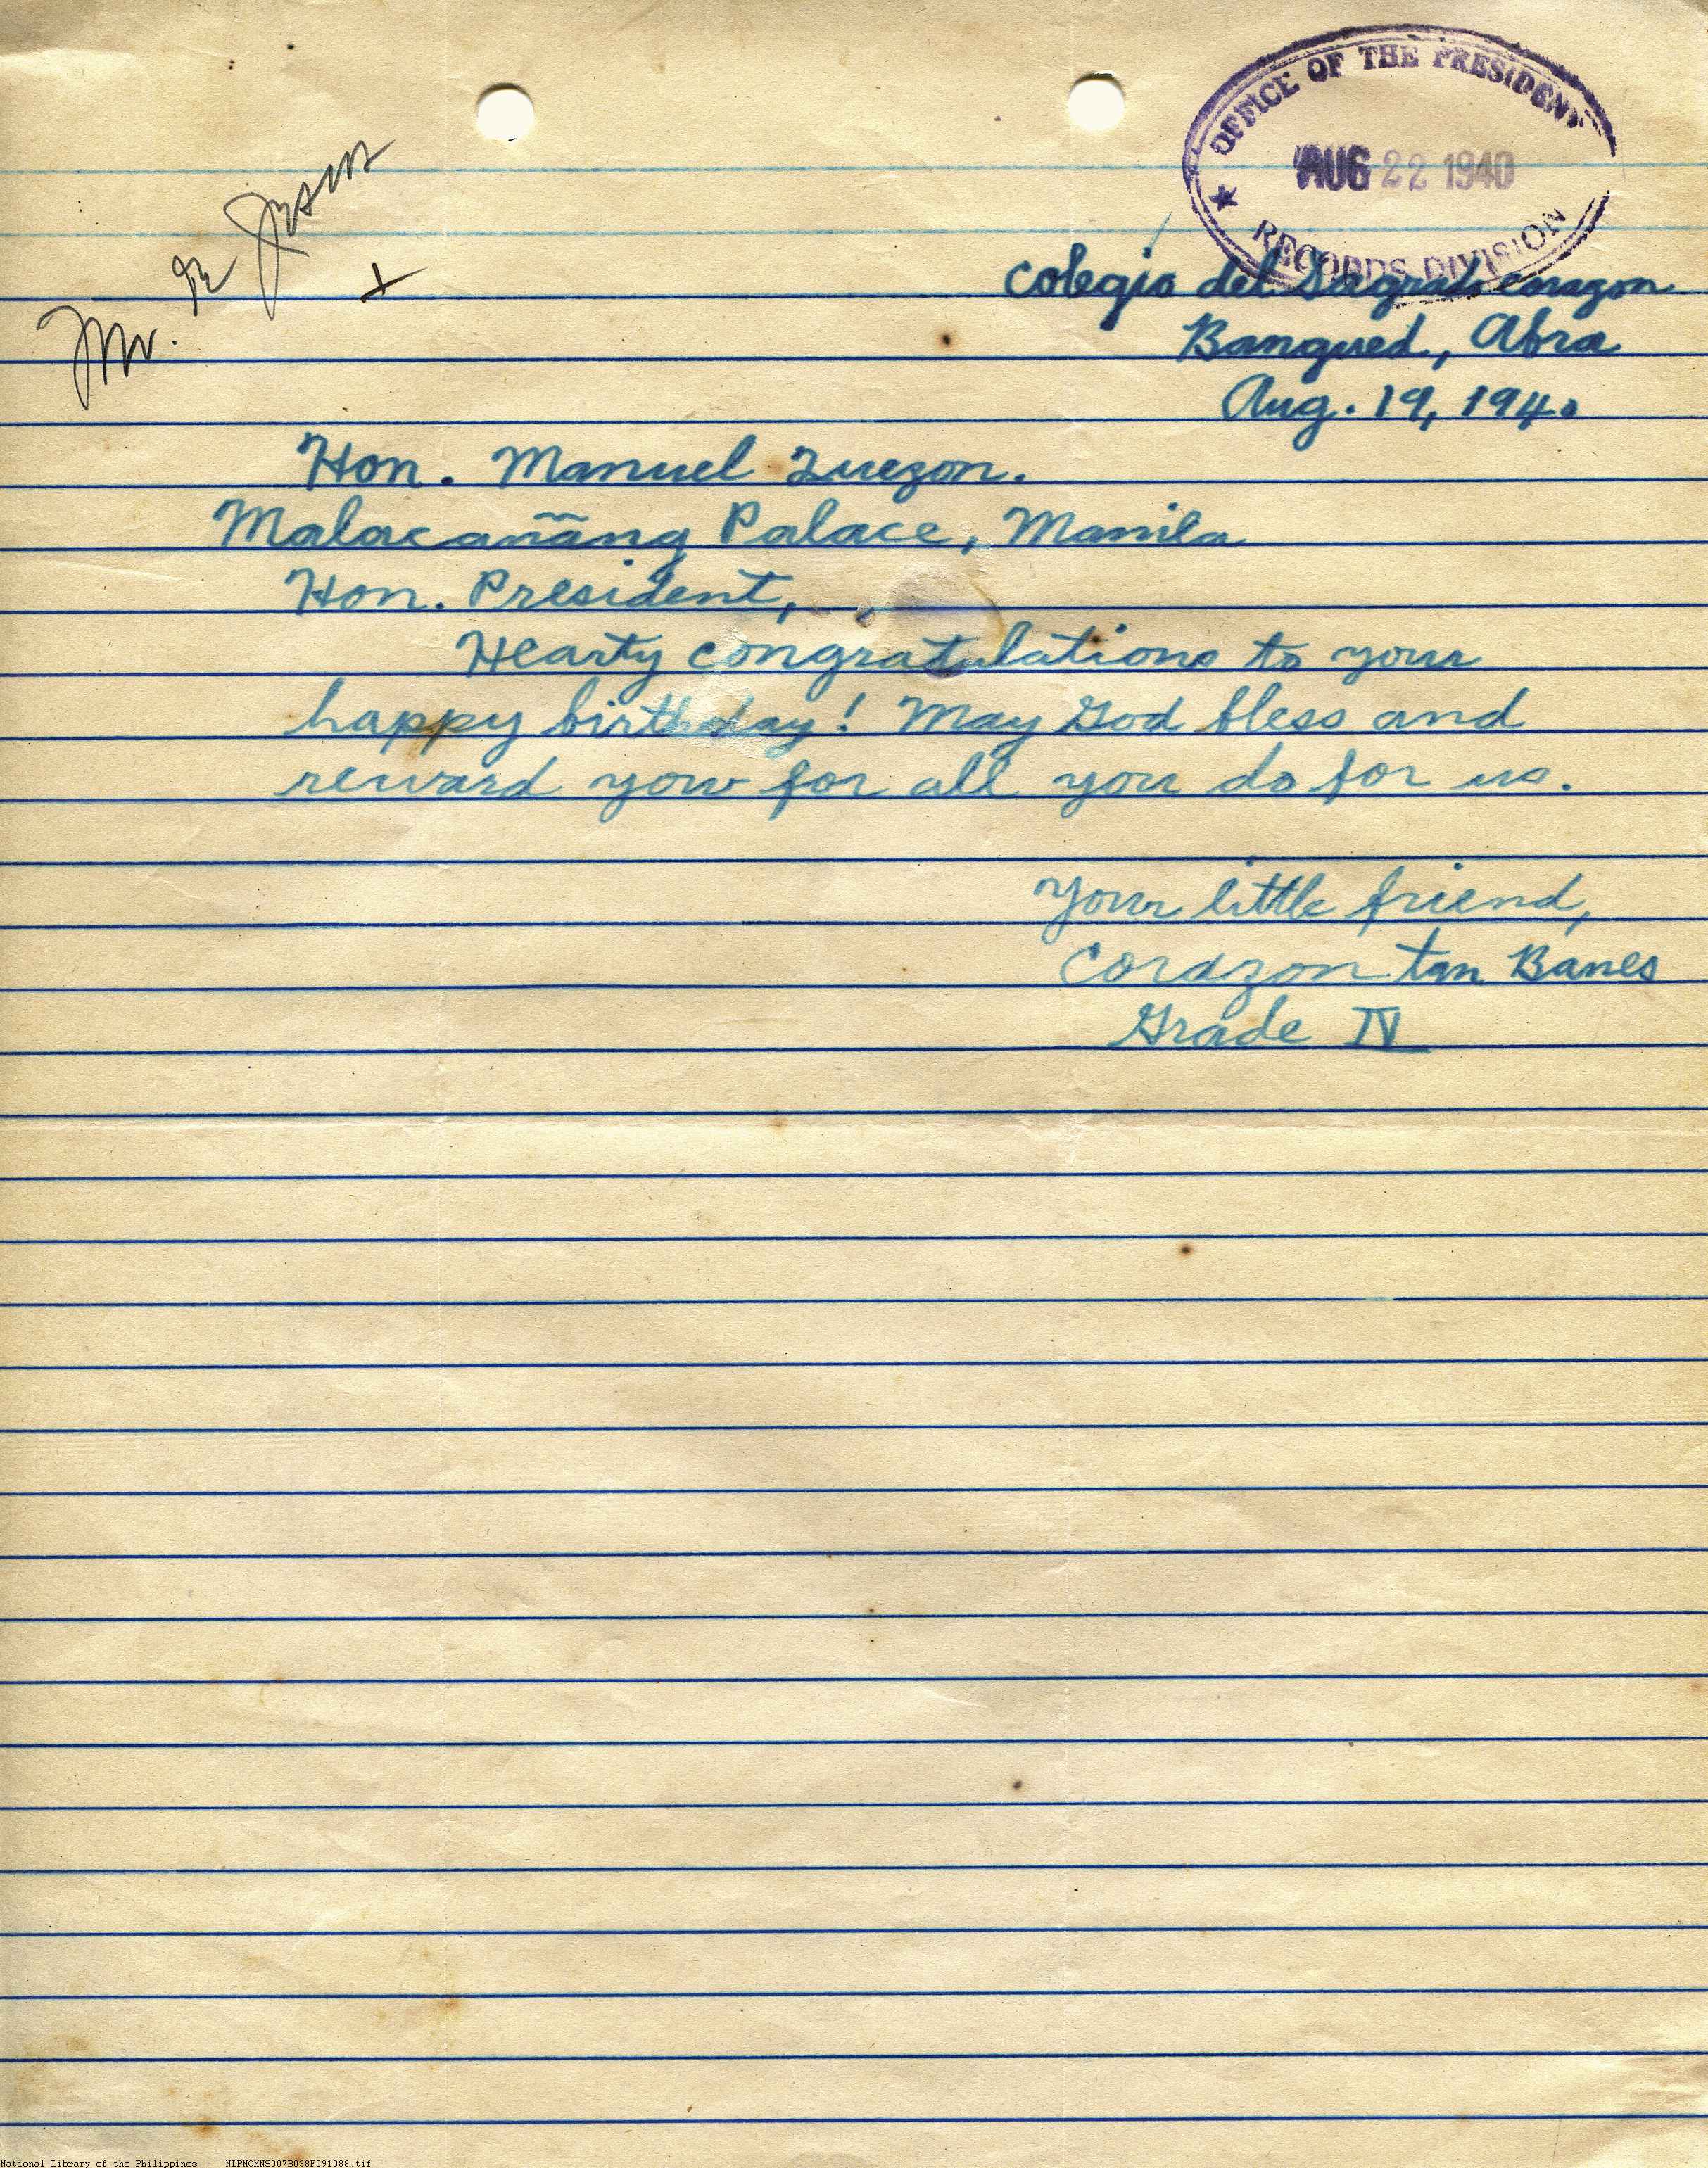 OFFICE OF THE PRESIDENT
AUG 22 1940
RECORDS DIVISION
Mr. de Jesus
Colegio del Sagrado Corazon
Bangued, Abra
Aug. 19, 1940
Hon. Manuel Quezon.
Malacañãng Palace, Manila
Hon. President,
Hearty congratulations to your
happy birthday! May God bless and
reward you for all you do for us.
Your little friend,
Corazon tan Banes
Grade IV
National Library of the Philippines NLPMQMNS007B038F091088.tif